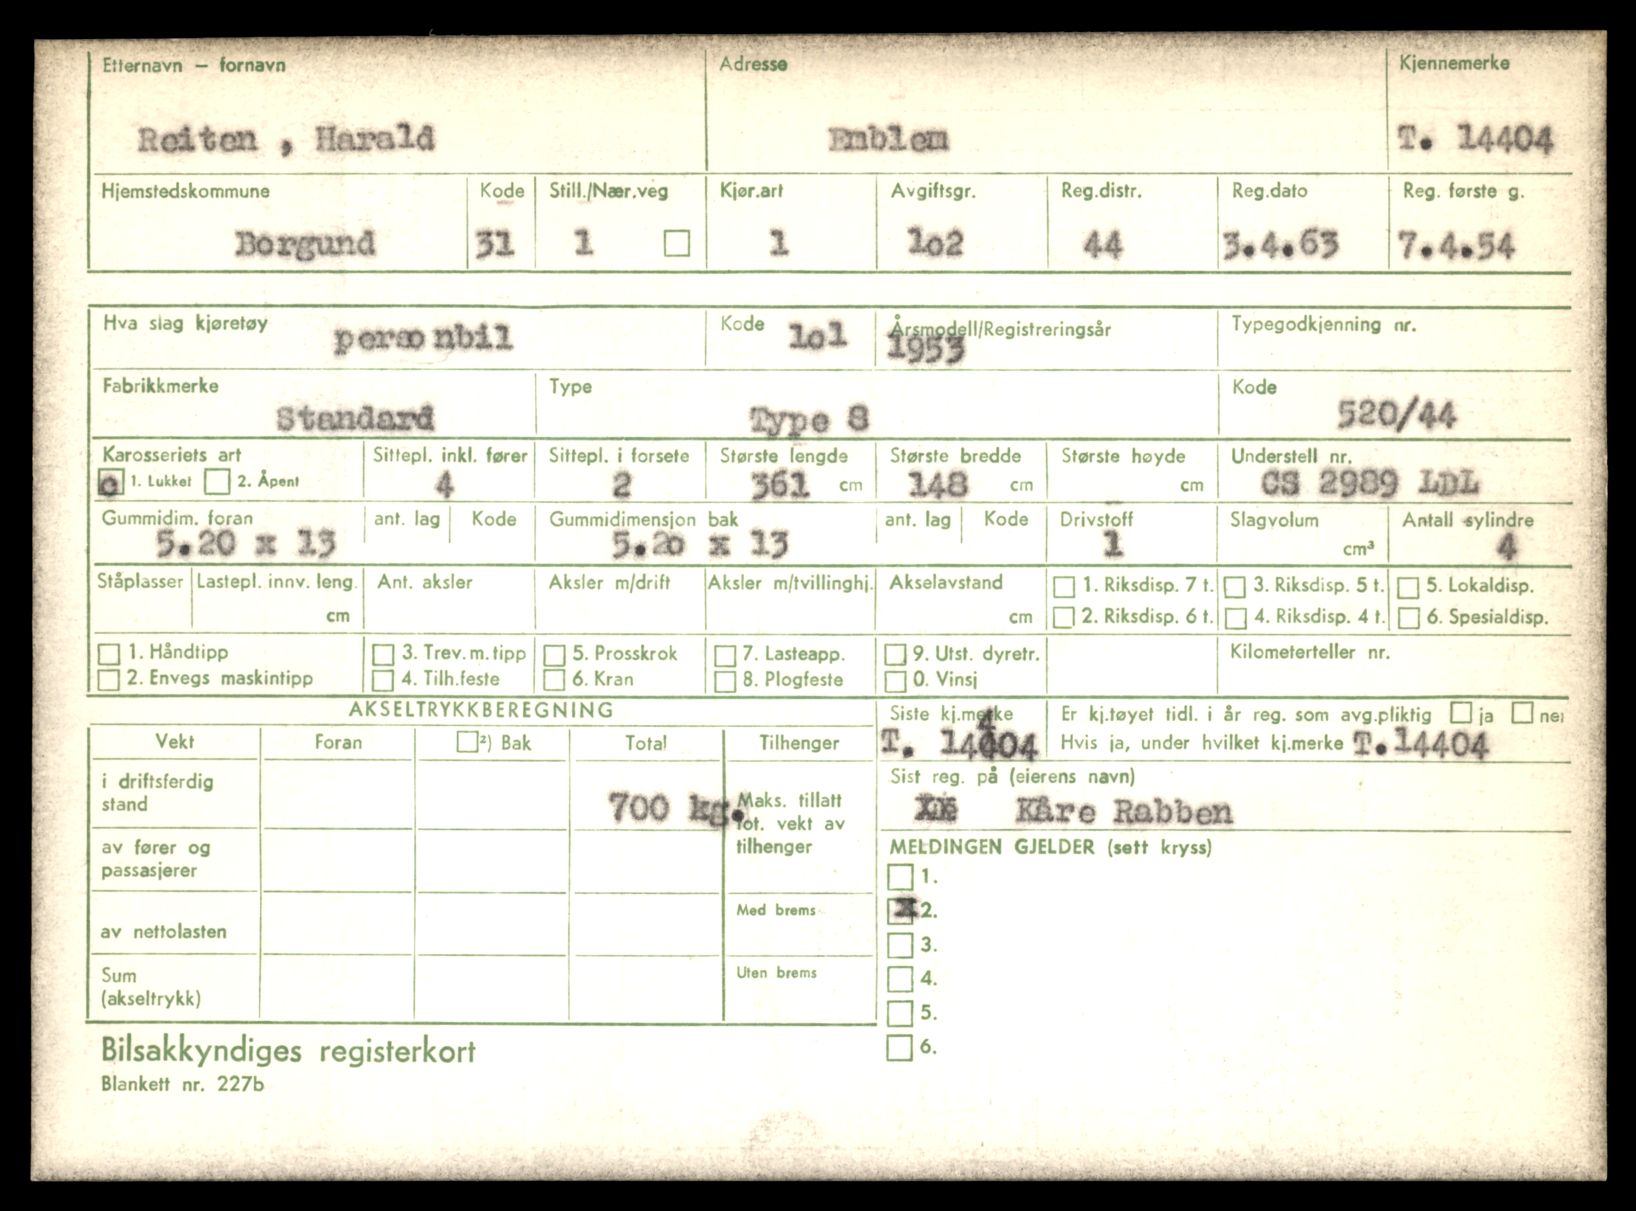 Etternavn – fornavn Adresse Kjennemerke
Reiten , Harald Emblem T. 14404
Hjemstedskommune Kode Still./Nær.veg Kjør.art Avgiftsgr. Reg.distr. Reg.dato Reg. første g.
Borgund 31 1 1 1o2 44 3.4.63 7.4.54
Hva slag kjøretøy Kode Årsmodell/Registreringsår Typegodkjenning nr.
personbil 1o1 1953
Fabrikkmerke Type Kode
Standard Type 8 520/44
Karosseriets art Sittepl. inkl. fører Sittepl. i forsete Største lengde Største bredde Største høyde Understell nr.
1. Lukket 2. Åpent 4 2 361 cm 148 cm cm CS 2989 LDL
Gummidim. foran ant. lag Kode Gummidimensjon bak ant. lag Kode Drivstoff Slagvolum Antall sylindre
5.20 x 13 5.2o x 13 1 cm³ 4
Ståplasser Lastepl. innv. leng. Ant. aksler Aksler m/drift Aksler m/tvillinghj. Akselavstand 1. Riksdisp. 7 t. 3. Riksdisp. 5 t. 5. Lokaldisp.
cm cm 2. Riksdisp. 6 t. 4. Riksdisp. 4 t. 6. Spesialdisp.
1. Håndtipp 3. Trev. m. tipp 5. Prosskrok 7. Lasteapp. 9. Utst. dyretr. Kilometerteller nr.
2. Envegs maskintipp 4. Tilh.feste 6. Kran 8. Plogfeste 0. Vinsj
AKSELTRYKKBEREGNING Siste kj.merke Er kj.tøyet tidl. i år reg. som avg.pliktig ja nei
Vekt Foran ²) Bak Total Tilhenger T. 14404 Hvis ja, under hvilket kj.merke T.14404
i driftsferdig stand 700 kg. Maks. tillatt tot. vekt av tilhenger Sist reg. på (eierens navn)
Kåre Rabben
av fører og passasjerer MELDINGEN GJELDER (sett kryss)
1.
av nettolasten Med brems x 2.
3.
Sum (akseltrykk) Uten brems 4.
5.
Bilsakkyndiges registerkort 6.
Blankett nr. 227b